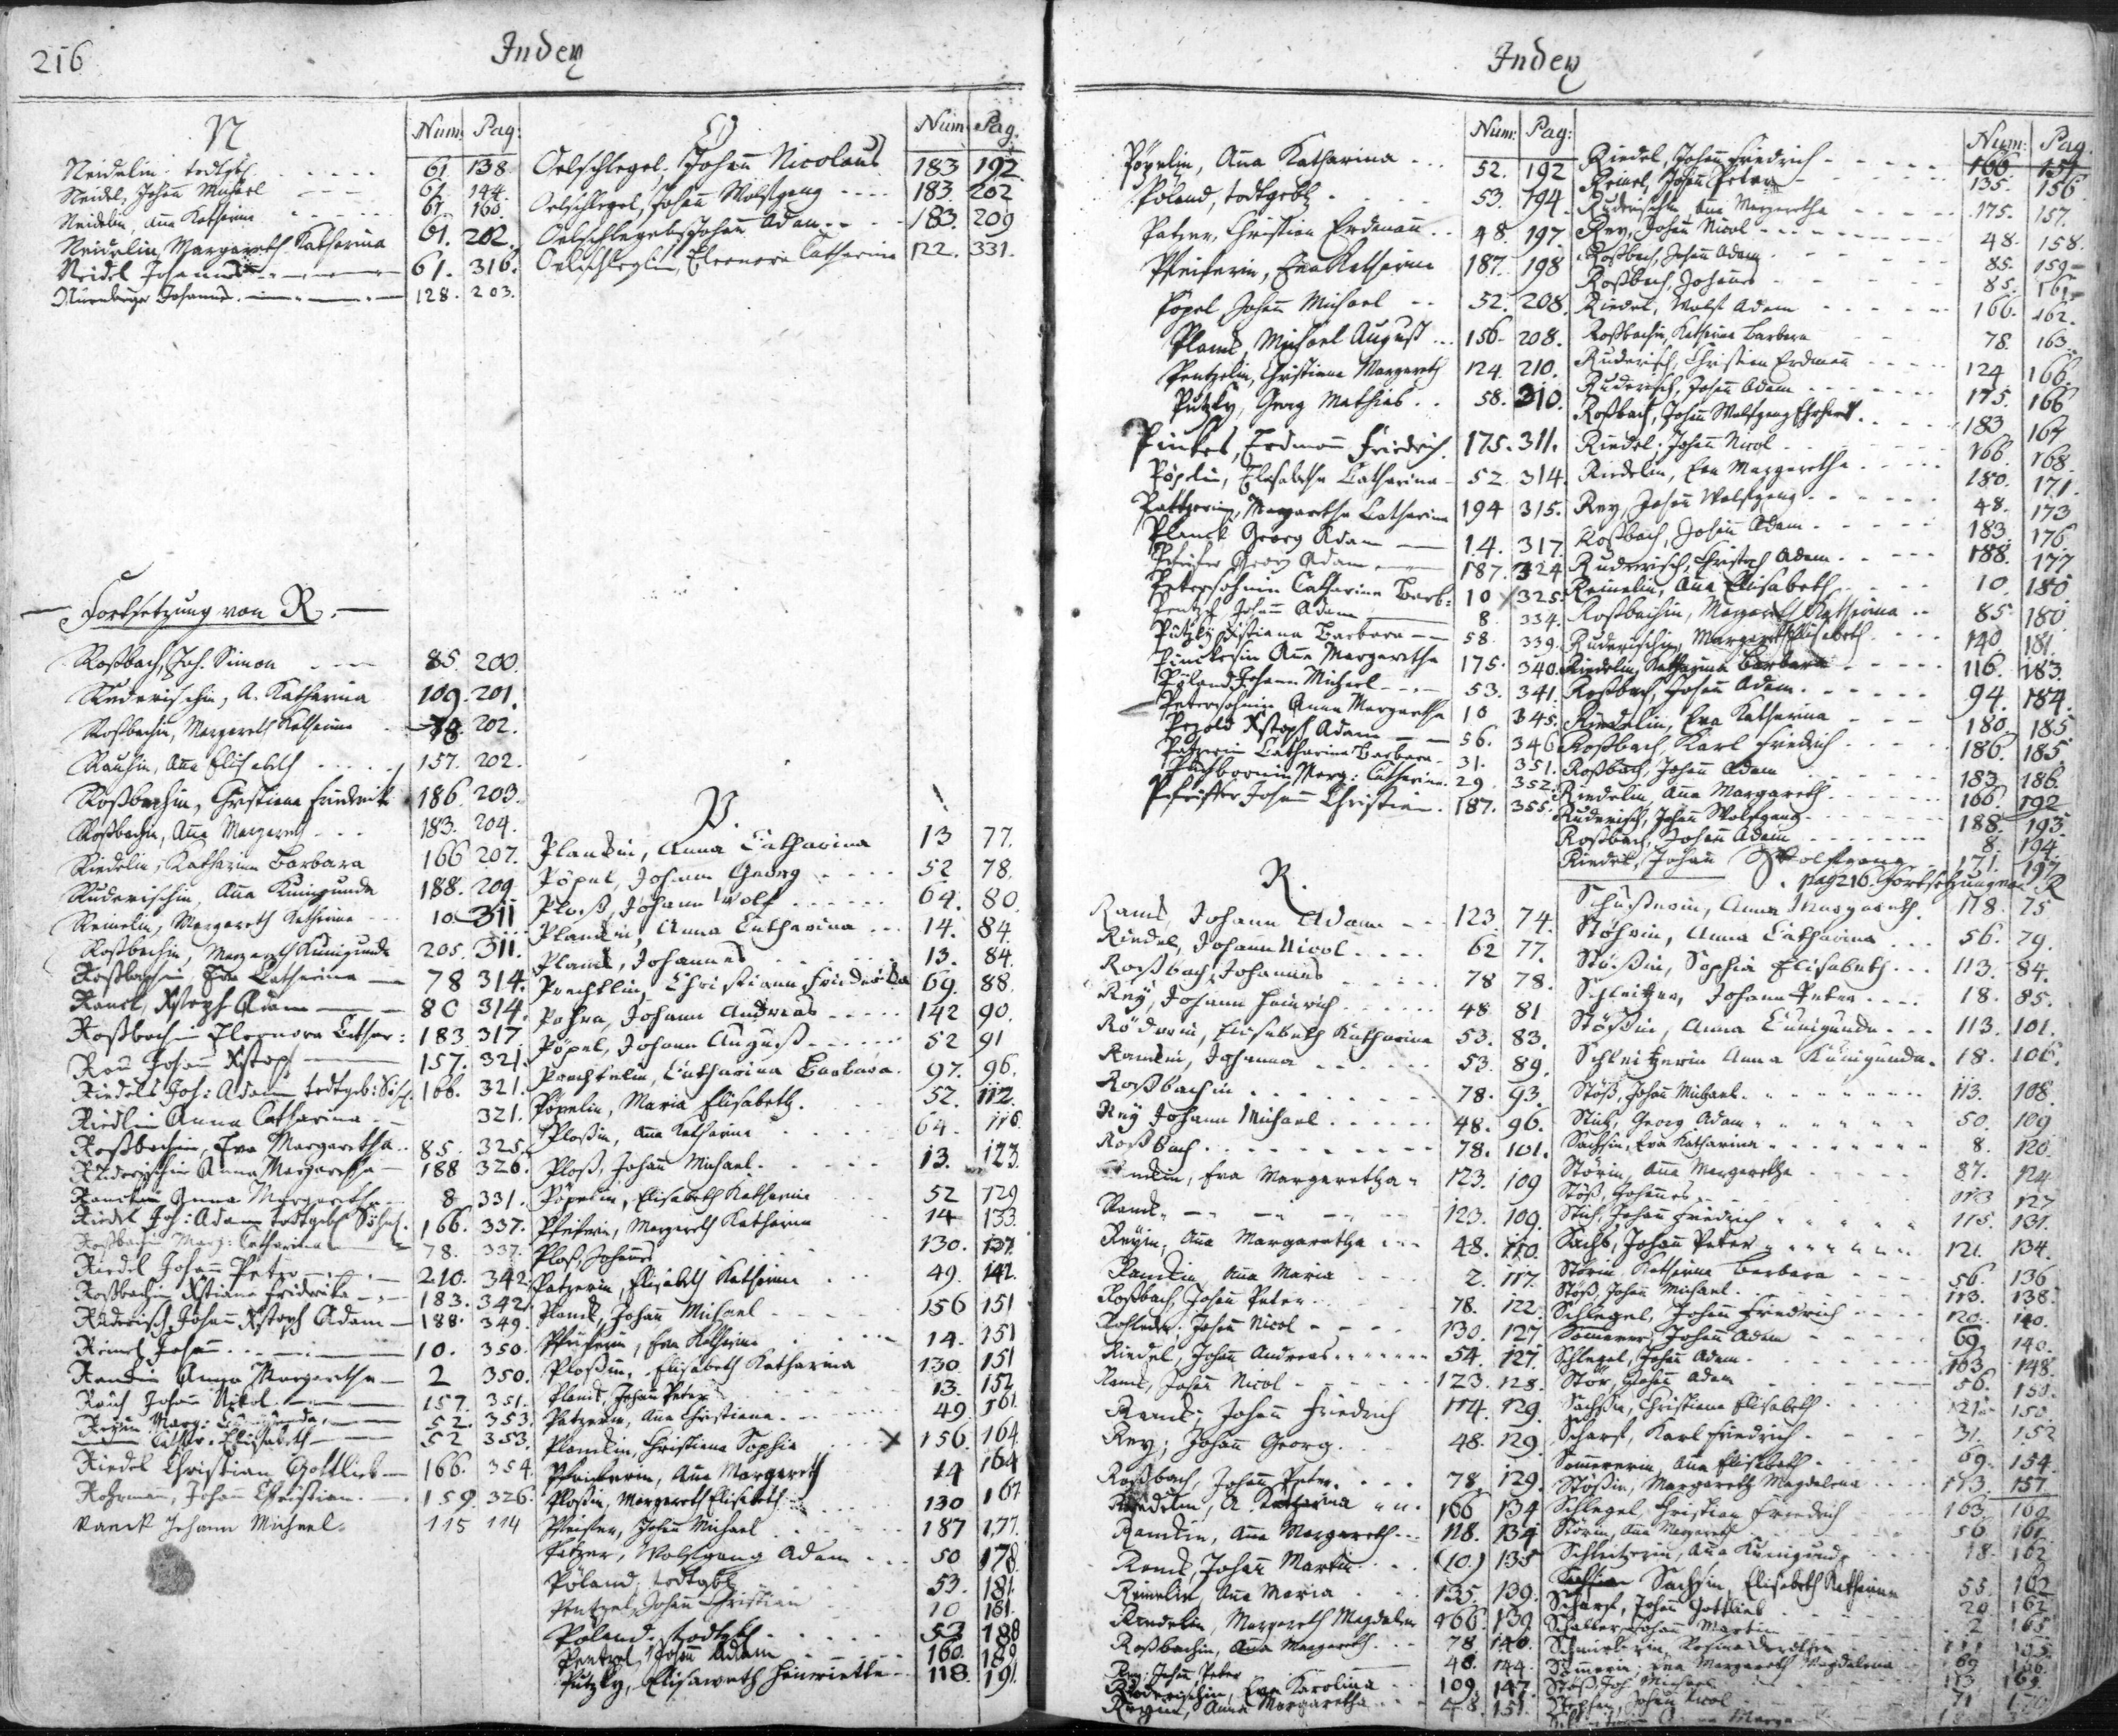 216
Index
N
Num: Pag:
Neidelin todtgeb. 61. 138
Neidel, Johann Michael 61. 144.
Neidelin, Anna Katharina 61. 160.
Neidelin Margareth Katharina 61. 202.
Neidel Johannes 61. 316.
Nürnberger Johannes 128. 203.
Fortsetzung von R.
Roßbach, Joh. Simon 85. 200.
Ruderischin, A. Katharina 109. 201.
Roßbachin, Margareth Katharina 78. 202.
Rauhin, Anna Elisabeth 157. 202.
Roßbachin, Christiana Friederik 186. 203.
Roßbachin, Anna Margareth 183. 204.
Riedelin, Katharina Barbara 166 207.
Ruderischin, Anna Kunigunda 188. 209
Reinelin, Margareth Katharina 10. 311
Roßbachin, Margareth Kunigunda 205. 311.
Roßbachin Eva Catharina 78 314.
Ranck, Xstoph Adam 80 314.
Roßbachin Eleonora Cathar: 183. 317
Rau Johann Xstoph 157. 321.
Riedels Joh: Adam todtgeb: 166. 321.
Riedlin Anna Catharina 321.
Roßbachin, Eva Margaretha 85. 325.
Ruderischin Anna Margaretha 188 326.
Ranckin Anna Margaretha 8 331.
Riedel Joh: Adam todtgeb. Söhnl. 166. 337.
Roßbachin Marg: Catharina 78. 337.
Riedel Johann Peter 210. 342.
Roßbachin Xstiana Fridrika 183. 342.
Ruderisch, Johann Xstoph Adam 188. 349.
Reinel Johann 10. 350.
Ranckin Anna Margaretha 2 350.
Rauch Johann Nikol 157. 351.
Reyin Marg: Cunigunda 52. 353.
Cathar: Elisabeth 52 353.
Riedel Christian Gottlieb 166. 354.
Rohrmann, Johann Christian 159. 326.
Ranck Johann Michael 115 114
O
Num: Pag.
Oelschlegel, Johann Nicolaus 183 192.
Oelschlegel, Johann Wolfgang 183. 202
Oelschlegel, Johann Adam 183. 209
Oelschleglin, Eleonora Catharina 122. 331.
P.
Planckin, Anna Catharina 13 77.
Pöpel, Johann Georg 52 78.
Ploß, Johann Wolf 64. 80.
Planckin, Anna Catharina 14. 84
Planck, Johannes 13. 84.
Prechtlin, Christiana Friederika 69. 88.
Pohra, Johann Andreas 142 90.
Pöpel, Johann August 52 91
Prechtelin, Catharina Barbara 97. 96.
Pöpelin, Maria Elisabeth 52. 112.
Ploßin, Anna Katharina 64. 116.
Ploß, Johann Michael 13. 123.
Pöpelin, Elisabeth Katharina 52 129
Pfeiferin, Margareth Katharina 14 133.
Ploß, Johannes 130. 137.
Patzerin, Elisabeth Katharina 49. 141.
Planck, Johann Michael 156 151
Pfeiferin, Eva Katharina 14. 151
Ploßin, Elisabeth Katharina 130 151
Planck, Johann Peter 13. 152
Patzerin, Anna Christiana 49 161.
Planckin, Christiana Sophia 156. 164.
Pfeiferin, Anna Margareth 14 164
Ploßin, Margareth Elisabeth 130 167
Pfeiffer, Johann Michael 187 177.
Patzer, Wolfgang Adam 50 178.
Pöland, todtgeb. 53. 181.
Pentzel, Johann Christian 10 181.
Pöland, todtgeb. 53 188
Pentzel, Johann Adam 160. 189.
Putzky, Elisabeth Henriette 118. 191.
Index
Num: Pag:
Pöpelin, Anna Katharina 52. 192
Pöland, todtgeb. 53. 194.
Patzer, Christian Erdmann 48. 197.
Pfeiferin, Eva Katharina 187. 198
Pöpel Johann Michael 52. 208.
Planck, Michael August 156. 208.
Pentzelin, Christiana Margareth 124. 210.
Putzky, Georg Mathias 58. 310.
Pinkes, Erdmann Friedrich 175. 311.
Pöplin, Elisabetha Catharina 52 314.
Patzerin, Margaretha Catharina 194 315.
Planck Georg Adam 14. 317.
Pfeifer Georg Adam 187. 324
Petersohnin Catharina Barb: 10 325.
Pentzel Johann Adam 8. 334.
Putzky Xstiana Barbara 58. 339.
Pinckesin Anna Margaretha 175. 340.
Pöland Johann Michael 53. 341.
Petersohnin Anna Margaretha 10 345.
Pezold Xstoph Adam 56. 346
Patzerin Catharina Barbara 31. 351.
Marg: Catharina 29. 352.
Pfeiffer Johann Christian 187. 355.
R.
Ranck, Johann Adam 123. 74.
Riedel, Johann Nicol 62 77.
Roßbach, Johannes 78 78.
Rey, Johann Heinrich 48 81
Röderin, Elisabeth Katharina 53. 83.
Ranckin, Johanna 53. 89.
Roßbachin 78. 93.
Rey Johann Michael 48. 96.
Roßbach 78. 101.
Eva Margaretha 123. 109
Ranck 123. 109.
Reyin, Anna Margaretha 48. 110.
Ranckin, Anna Maria 2. 117.
Roßbach, Johann Peter 78. 122.
Johann Nicol 130. 127.
Riedel, Johann Andreas 54. 127.
Ranck, Johann Nicol 123. 128.
Ranck, Johann Friedrich 114. 129.
Rey, Johann Georg 48. 129.
Roßbach, Johann Peter 78. 129.
Riedelin, A. Katharina 166 134
Ranckin, Anna Margareth 118. 134.
Ranck, Johann Martin (10) 135
Reinelin, Anna Maria 135. 139.
Riedelin, Margareth Magdalena 166. 139.
Roßbachin, Anna Margareth 78 140.
Rey, Johann Peter 48. 144.
Ruderischin, Eva Karolina 109. 147.
Reyin, Anna Margaretha 48. 151.
Num: Pag.
Riedel, Johann Friedrich 166. 154
Reinel, Johann Peter 135. 156
Ruderischin Anna Margaretha 175. 157.
Rey, Johann Nicol 48. 158.
Roßbach, Johann Adam 85. 159
Roßbach, Johannes 85. 161
Riedel, Wolf Adam 166. 162.
Roßbachin, Katharina Barbara 78. 163.
Ruderisch, Christian Erdmann 124 166.
Ruderisch, Johann Adam 175. 166
Roßbach, Johann Wolfgang Ehrhardt 183. 167
Riedel, Johann Nicol 166. 168.
Riedelin, Eva Margaretha 180. 171.
Rey, Johann Wolfgang 48. 173
Roßbach, Johann Adam 183. 176.
Ruderisch, Christoph Adam 188. 177
Reinelin, Anna Elisabeth 10. 180
Roßbachin, Margareth Katharina 85. 180
Ruderischin, Margareth Elisabeth 140. 181.
Riedelin, Katharina Barbara 116. 183.
Roßbach, Johann Adam 94. 184.
Riedelin, Eva Katharina 180. 185
Roßbach, Karl Friedrich 186. 185.
Roßbach, Johann Adam 183. 186.
Riedelin, Anna Margareth 166. 192
Ruderisch, Johann Wolfgang 188. 193.
Roßbach, Johann Adam 8. 194.
Riedel, Johann Wolfgang 171. 197
pag 216. Fortsetzung von R
Schusterin, Anna Margareth 118. 75
Stöhrin, Anna Catharina 56. 79.
Stößin, Sophia Elisabeth 113. 84.
Schleitzer, Johann Peter 18. 85.
Stößin, Anna Cunigunda 113. 101.
Schleitzerin Anna Kunigunda 18. 106.
Stöß, Johann Michael 113. 108.
Stich, Georg Adam 50. 109
Sachsin, Eva Katharina 8. 120.
Störin, Anna Margaretha 87. 124
Stöß, Johannes 113 127
Stich, Johann Friedrich 115. 131.
Sachs, Johann Peter 121. 134.
Störin, Katharina Barbara 56. 136
Stöß, Johann Michael 113. 138.
Schlegel, Johann Friedrich 120. 140.
Sommerer, Johann Adam 69. 140.
Schlegel, Johann Adam 163. 148.
Stör, Johann Adam 56. 150.
Sachsin, Christiana Elisabeth 121. 150.
Scharf, Karl Friedrich 31. 152
Sommererin, Anna Elisabeth 69. 154.
Stößin, Margareth Magdalena 113. 157.
Schlegel, Christian Friedrich 163. 160.
Störin, Anna Margareth 56. 161
Schleitzerin, Anna Kunigunda 18. 162
Sachsin, Elisabeth Katharina 55. 162
Scharf, Johann Gottlieb 20. 162
Schaller, Johann Martin 2 165
Eva Margareth Magdalena 69 166.
Stöß, Joh. Michael 113 169.
Johann Nicol 71 170